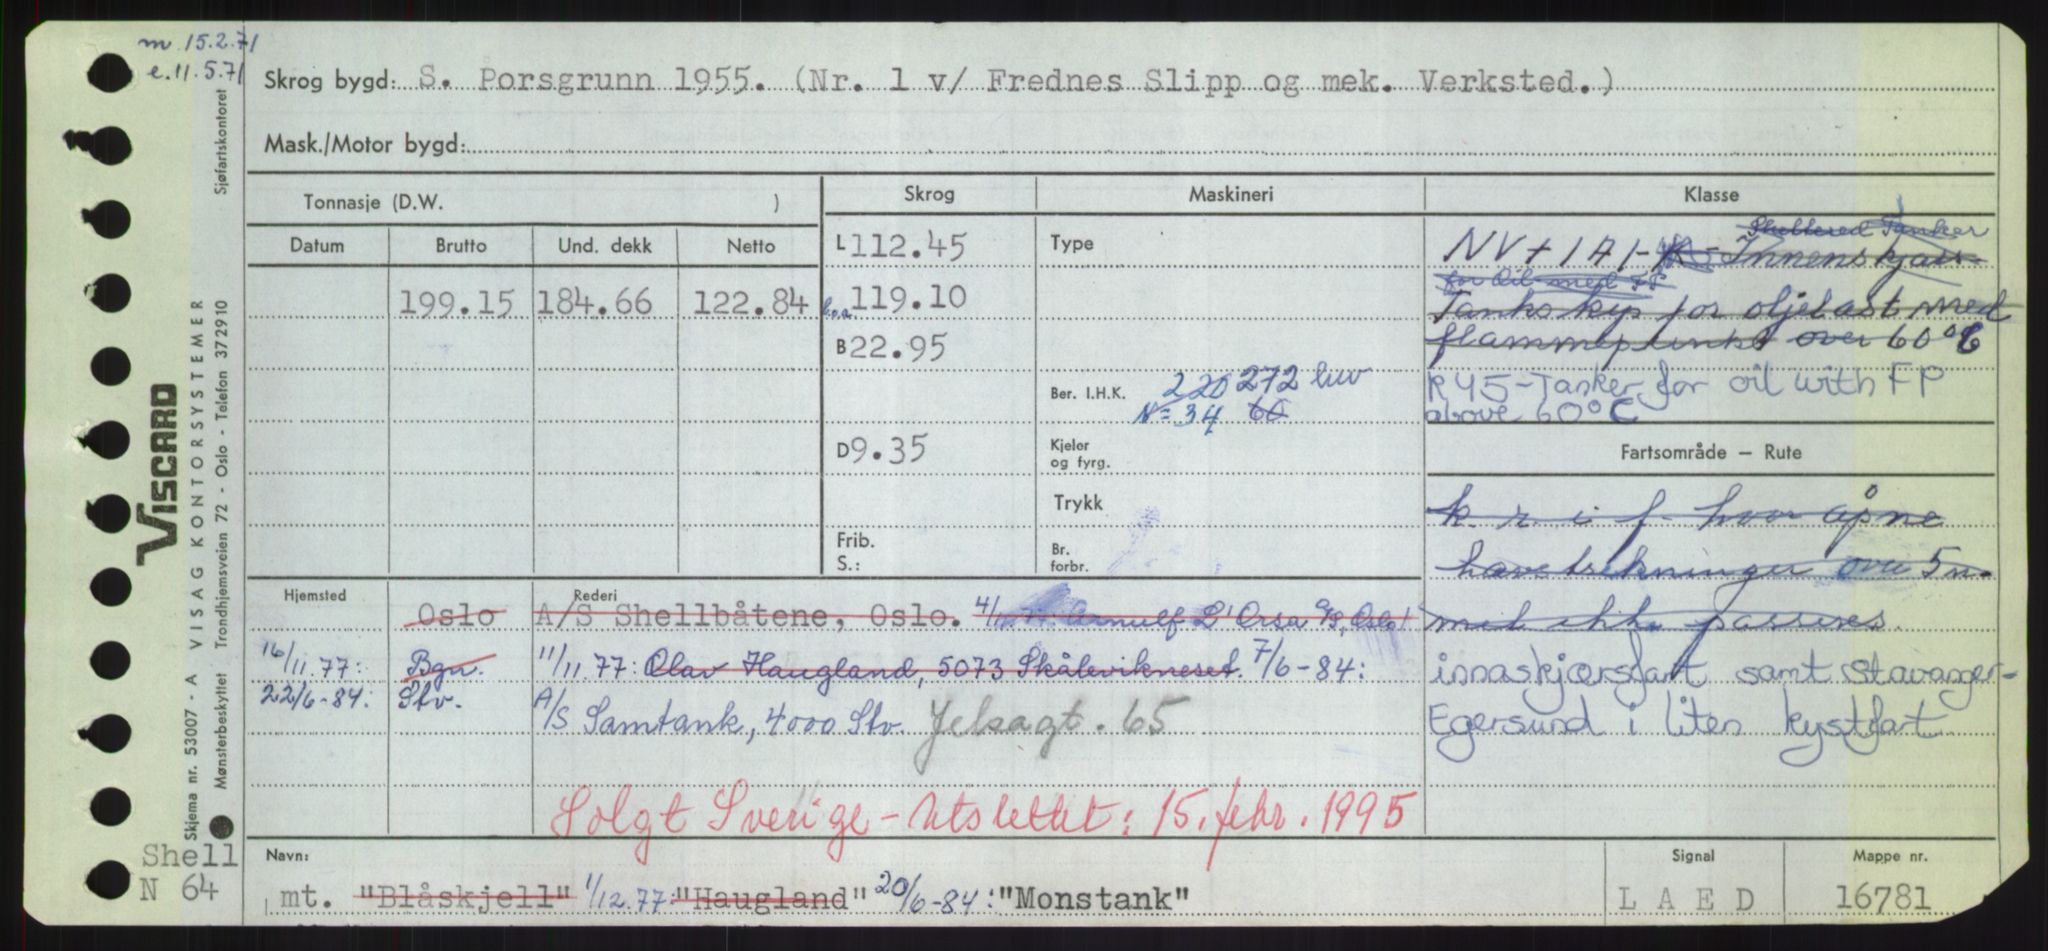 m 15.2.71
e. 11.5.71
Skrog bygd: S. Porsgrunn 1955. (Nr. 1 v/ Frednes Slipp og mek. Verksted.)
Mask./Motor bygd:
Tonnasje (D.W. )
Skrog
Maskineri
Klasse
Datum
Brutto
Und. dekk
Netto
199.15
184.66
122.84
L 112.45
l.o.a. 119.10
B 22.95
D 9.35
Frib.
S.:
Type
Ber. I.H.K.
220 272 hw
N = 34 66
Kjeler
og fyrg.
Trykk
Br.
forbr.
Sheltered Tanker
NV + 1A1 - K - Innenskjærs
for Oil med FP
Tankskip for oljelast med
flammepunkt over 60°C
R45 - Tanker for oil with FP
above 60°C
Fartsområde – Rute
k r i f hvor åpne
havstrekninger over 5 n.
mil ikke passeres.
innaskjærsfart samt Stavanger-
Egersund i liten kystfart
Hjemsted
Rederi
Oslo
A/S Shellbåtene, Oslo. Arnulf L'Orsa A/S, Oslo
16/11.77: Bgn. 11/11.77: Olav Haugland, 5073 Skålevikneset. 7/6-84:
22/6-84: Stv. A/S Samtank, 4000 Stv. Jelsagt. 65
Solgt Sverige - Utslettet: 15. febr. 1995
Shell
N 64
Navn:
mt. "Blåskjell" 1/12.77: "Haugland" 20/6-84: "Monstank"
Signal
L A E D
Mappe nr.
16781
VISCARD
Skjema nr. 53007 - A VISAG KONTORSYSTEMER
Mønsterbeskyttet Trondhjemsveien 72 - Oslo - Telefon 372910 Sjøfartskontoret